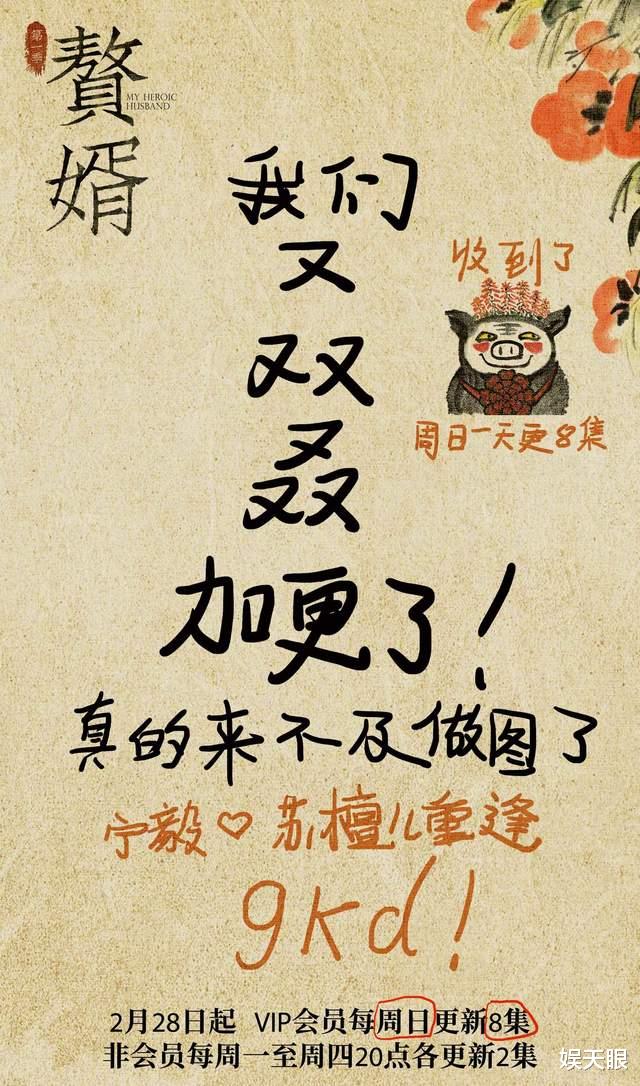 第一季
赘婿
MY HEROIC
HUSBAND
我们
又
双
叒
加更了！
收到了
周日一天更8集
真的来不及做图了
宁毅♡苏檀儿重逢
gkd！
2月28日起 VIP会员每周日更新8集
非会员每周一至周四20点各更新2集
娱天眼